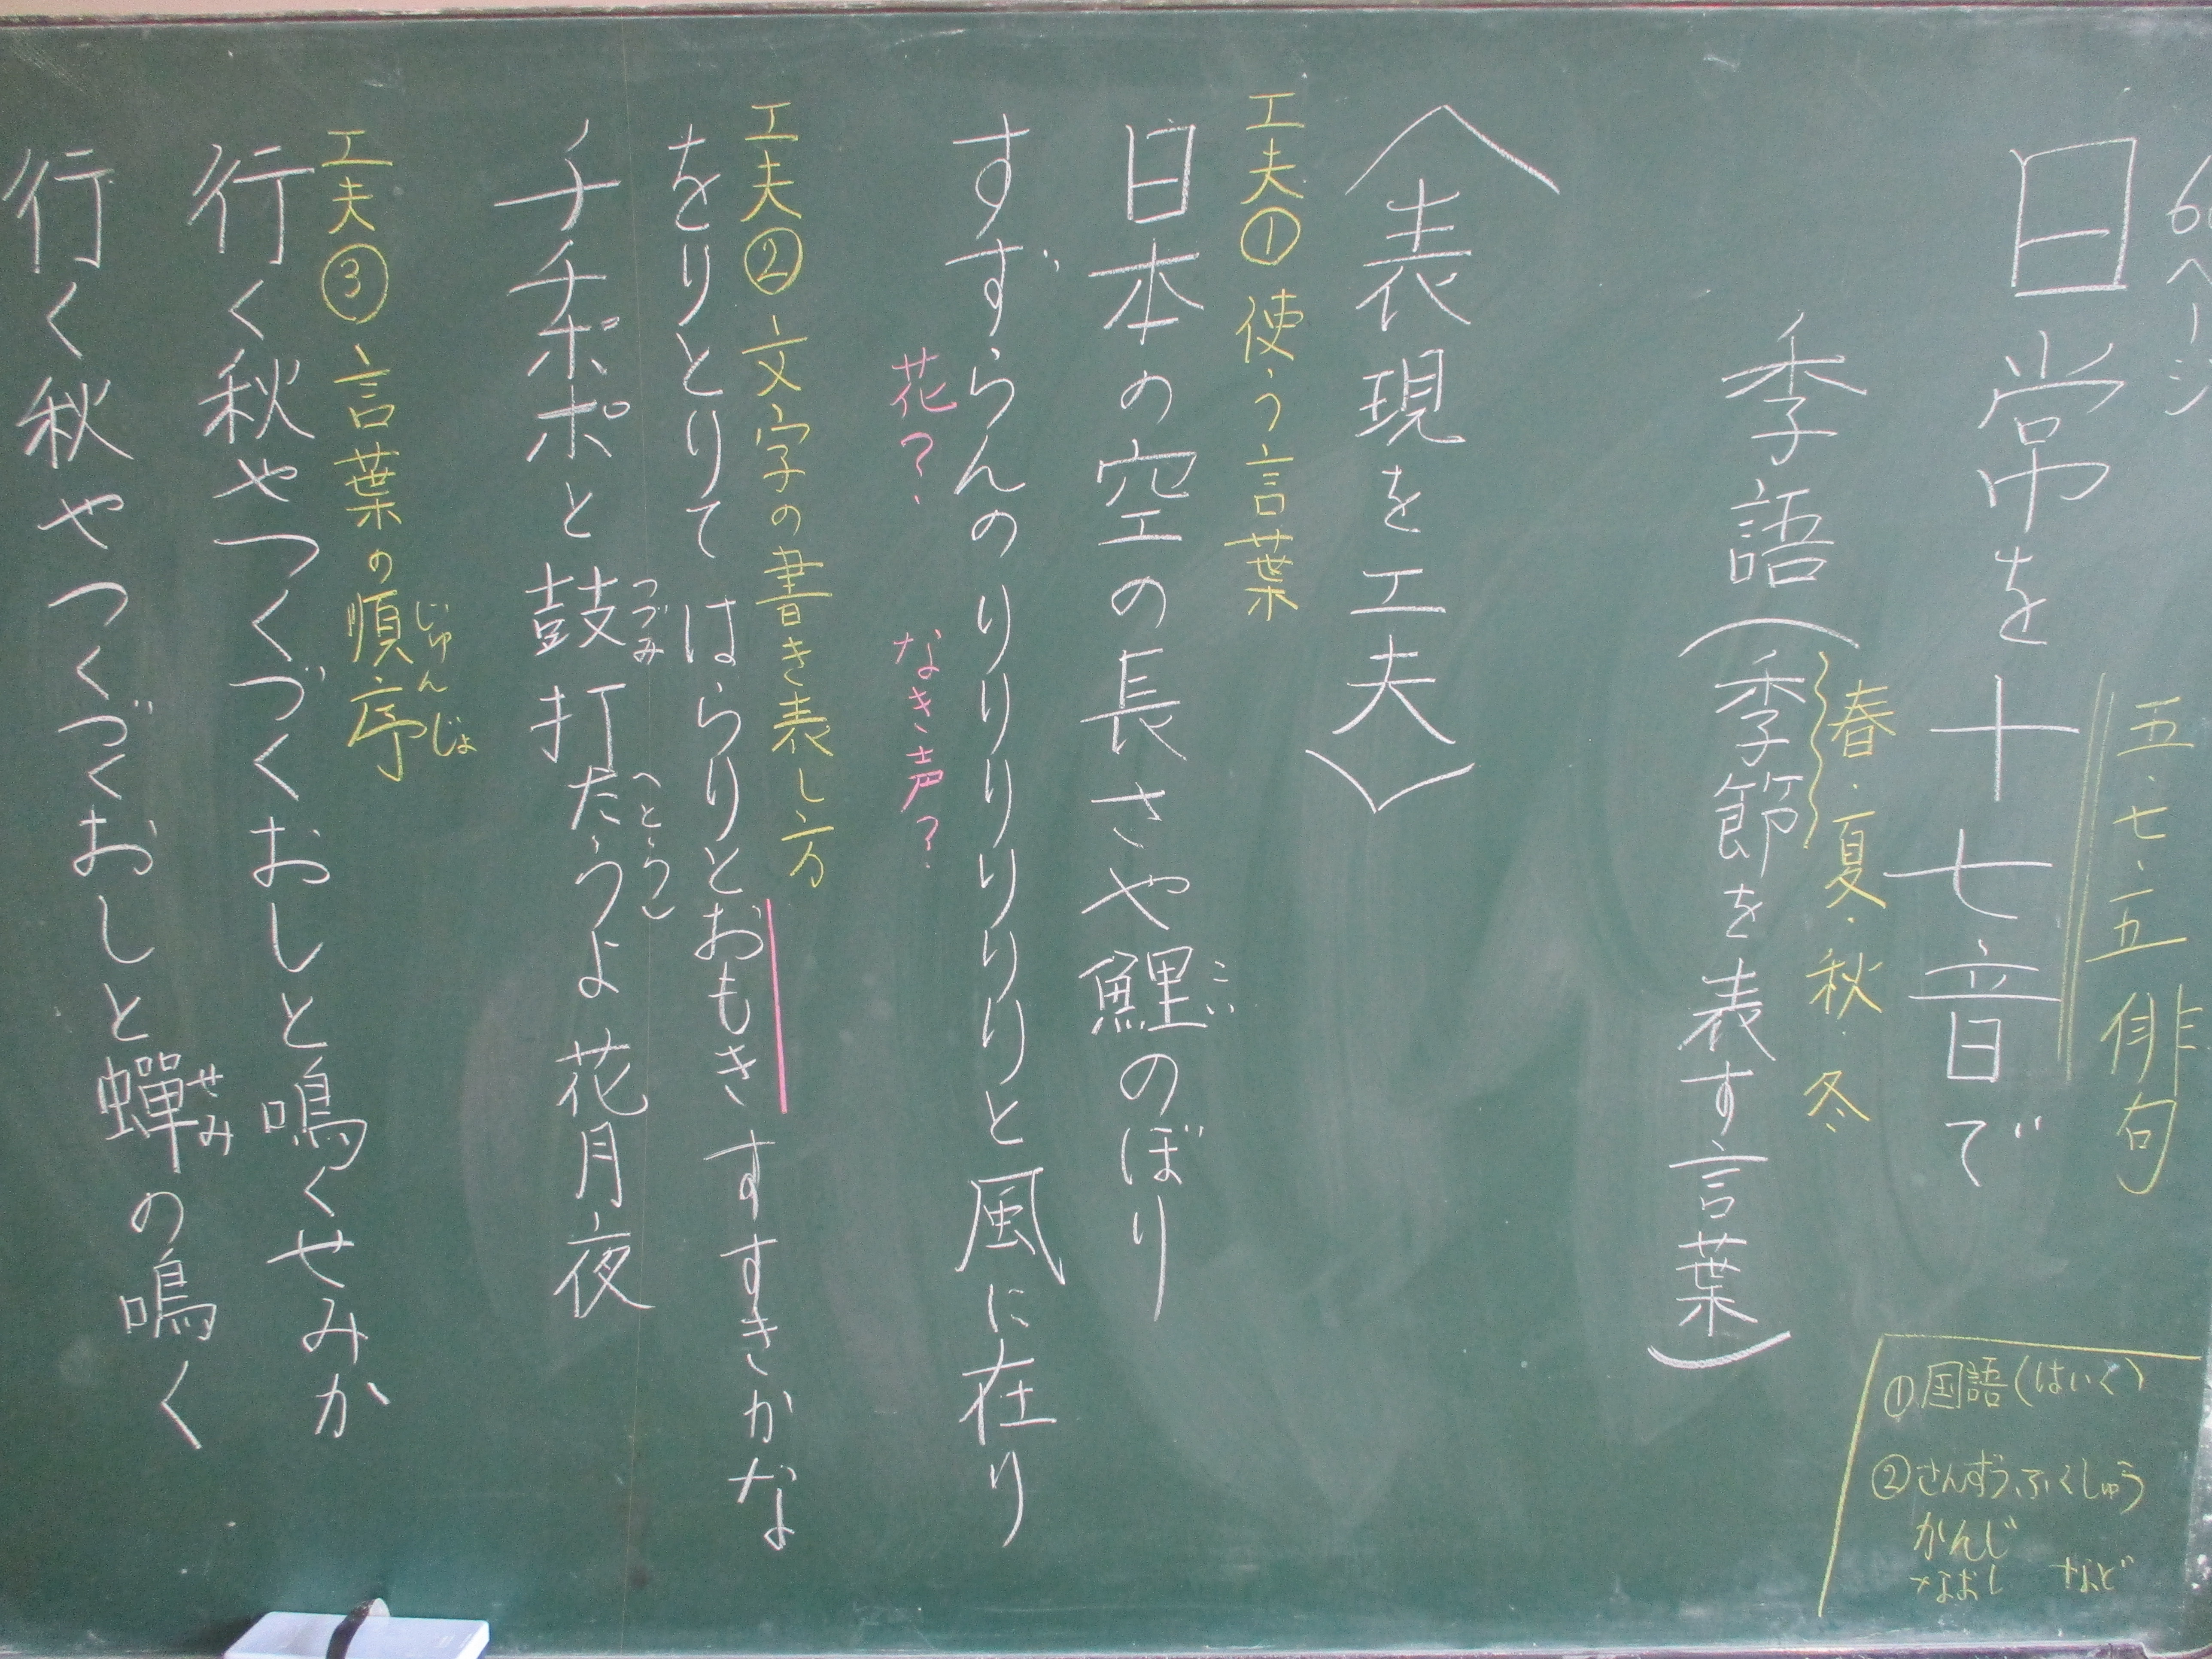 ページ
五・七・五 俳句
日常を十七音で
春・夏・秋・冬
季語(季節を表す言葉)
〈表現を工夫〉
工夫① 使う言葉
こい
日本の空の長さや鯉のぼり
すずらんのりりりりりりと風に在り
花? なき声?
工夫② 文字の書き表し方
をりとりてはらりとおもきすすきかな
つづみ
チチポポと鼓打たうよ花月夜
じゅんじょ
工夫③ 言葉の順序
行く秋やつくづくおしと鳴くせみか
せみ
行く秋やつくづくおしと蟬の鳴く
①国語(はいく)
②さんすうふくしゅう
かんじ
なおし など